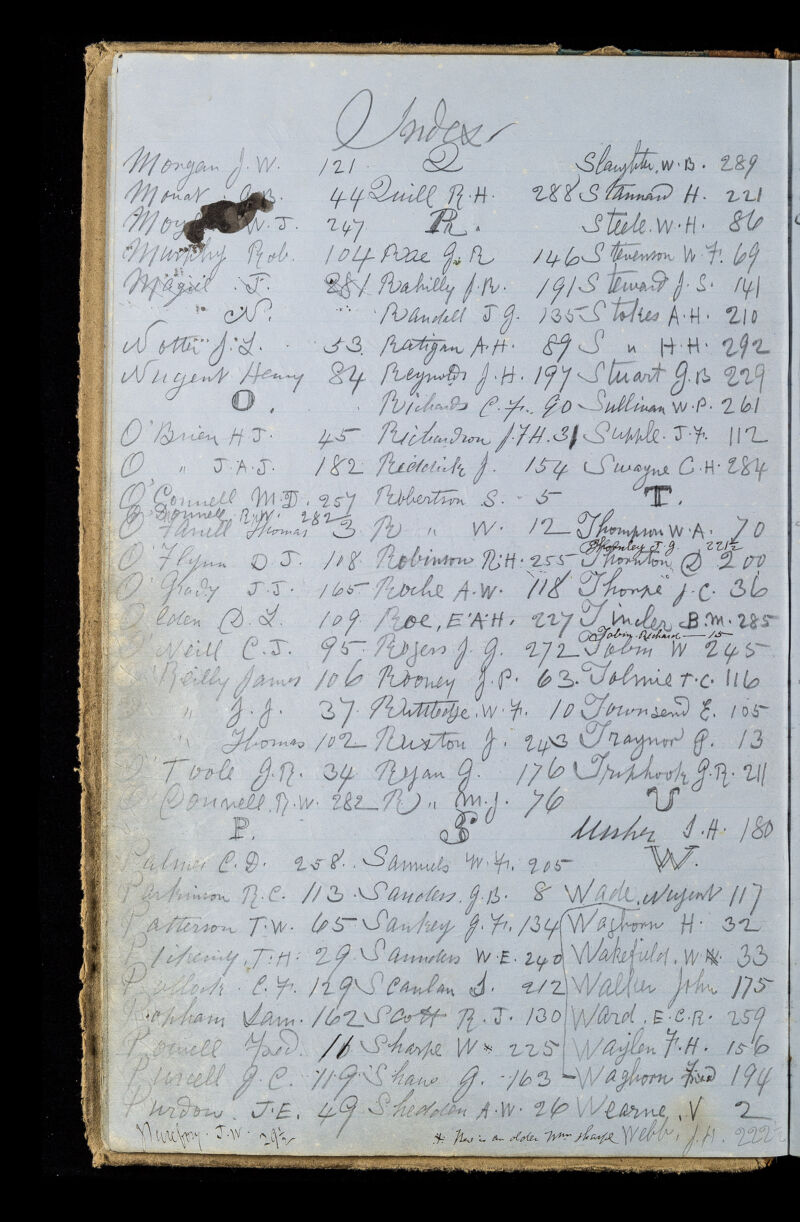 Index
Morgan J.W. 121
Monat B. 44
Moy W.J. 247
Murphy Rob. 104
Magill J. 281
N.
Notter J.L. 53
Nugent Henry 84
O.
O'Brien H J. 45
O " J.A.J. 182
O'Connell M.D. 257
O'Donnell R.W. 282
O'Farrell Thomas 3
O'Flynn D J. 108
O'Grady J.J. 165
Olden D. L. 109
O'Neill C.J. 95
O'Reilly James 106
O " J.J. 37
" Thomas 102
O'Toole G.R. 34
O'Connell R.W. 282
P.
Palmer C.D. 258
Parkinson R.C. 113
Patterson T.W. 65
Pikeing, T.H. 29
Pollock C.F. 129
Popham Sam. 162
Powell Fred. 11
Purcell G.C. 119
Purdon J.E. 49
J.W. 29½
Q
Quill R.H. 288
R.
Rae G.R 146
Rahilly J.R. 191
Randell J G. 135
Ratigan A.H. 89
Reynolds J.H. 197
Richards C.F. 90
Richardson J.F.H. 31
Reddrick J. 154
Robertson S. 5
R " W. 12
Robinson R.H. 255
Roche A.W. 118
Roe, E.A.H. 227
Rogers J.G. 272
Rooney J.P. 63
Ruttledge W.F. 10
Ruxton J. 243
Ryan G. 176
R " M.J. 76
S
Samuels W.F. 205
Sanders G.B. 8
Sankey G.F. 134
Saunders W E. 240
Scanlan J. 212
Scott R.J. 130
Sharpe W * 225
Shaw G. 163
Shedden A.W. 26
* This is an older Wm Sharpe
Slaughter W.B. 289
Stannard H. 221
Steele W.H. 86
Stevenson W.F. 69
Steward J.S. 141
Stokes A.H. 210
S " H.H. 292
Stuart G.B 229
Sullivan W.P. 261
Supple J.F. 112
Swayne C.H. 284
T.
Thompson W.A. 70
Thornley J.G. 221½
Thornton D 200
Thorpe J.C. 36
Tincler B.M. 285
Tobin Richard — 15
Tobin W 245
Tolmie T.C. 116
Townsend E. 105
Traynor P. 13
Triphook G.R. 211
U
Ussher I.H. 180
W.
Wade, Nugent 117
Waghorn H. 32
Wakefield. W 33
Waller John 175
Ward, E.C.R. 259
Waylen F.H. 156
Waghorn Fred 194
Wearne, V 2
Webb, J.H. 222½